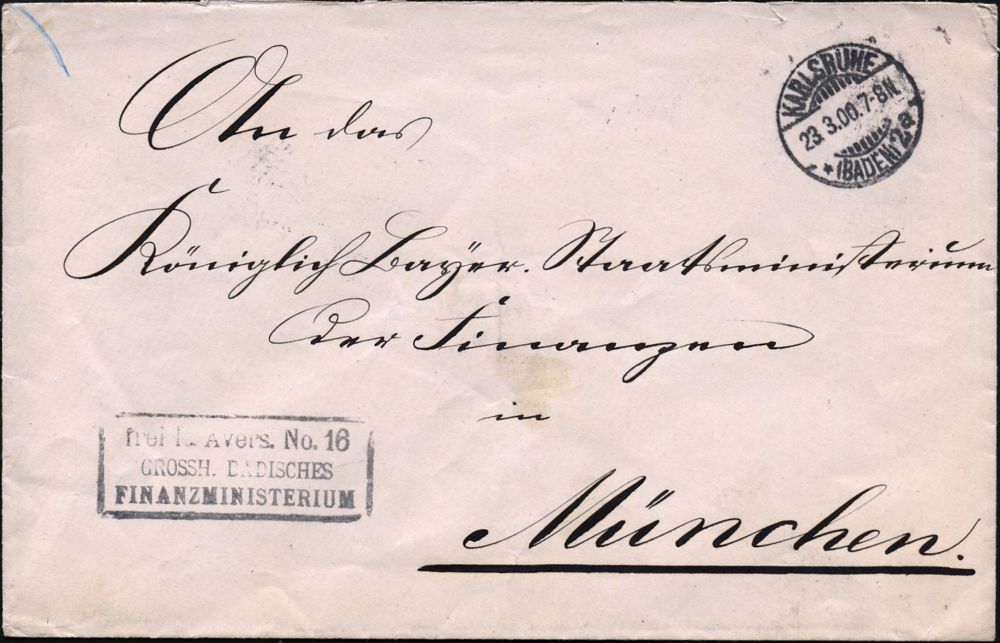 KARLSRUHE
23. 3.00.7-8N.
* (BADEN) 2a
An das
Königlich Bayer. Staatsministerium
der Finanzen
in
München.
frei lt. Avers. No. 16
GROSSH. BADISCHES
FINANZMINISTERIUM